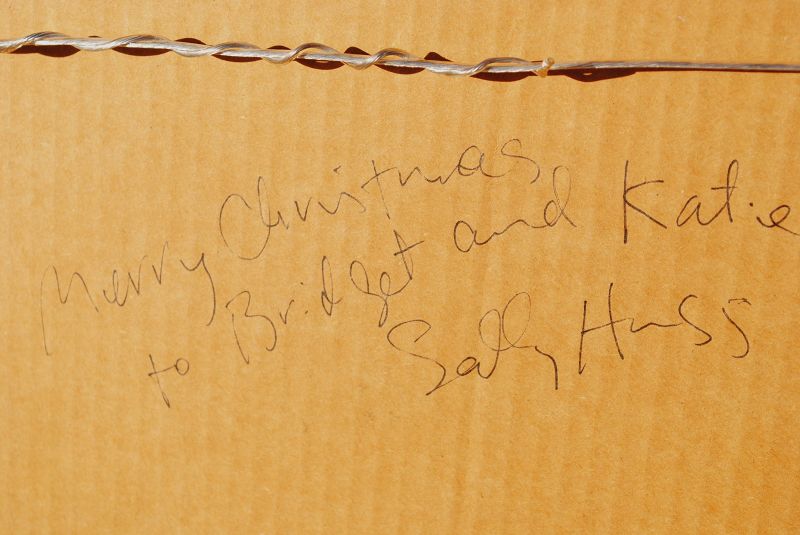 Merry Christmas
to Bridget and Katie
Sally Huss